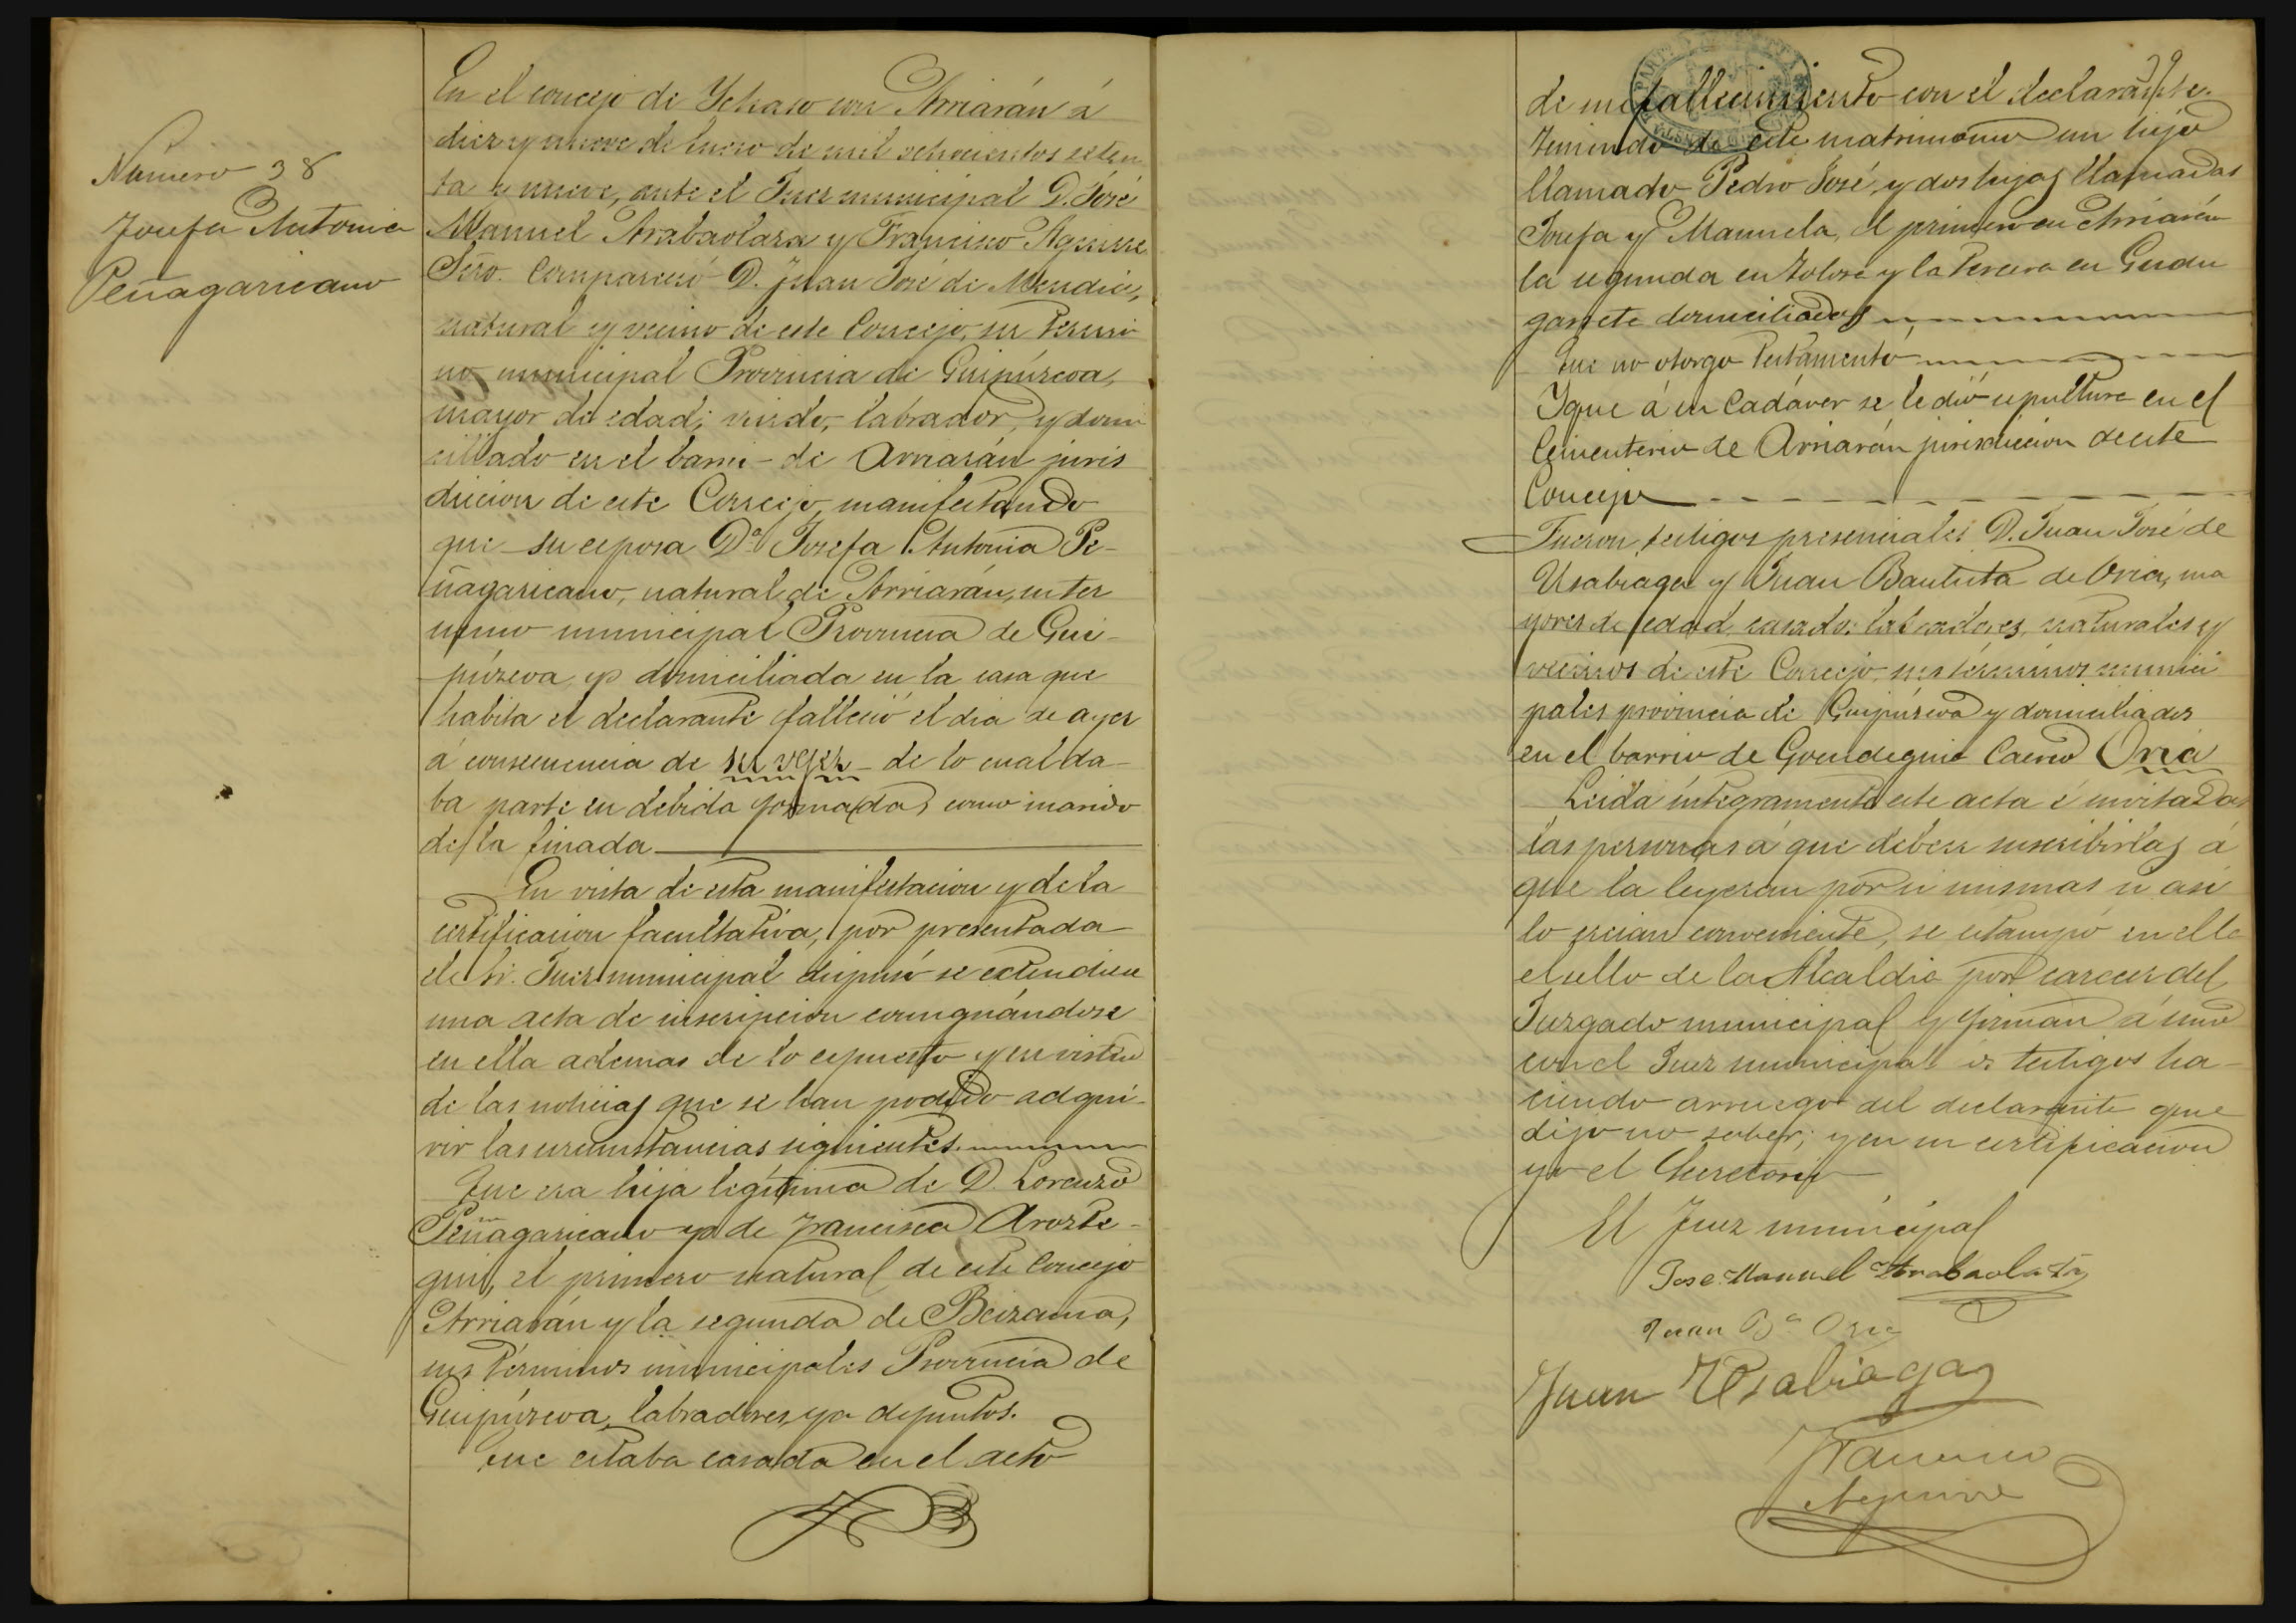 Número 38
Josefa Antonia
Peñagaricano
En el concejo de Ychaso con Arriarán á
diez y nueve de Enero de mil ochocientos seten
ta y nueve, ante el Juez municipal D. José
Manuel Arabaolaza y Francisco Aguirre
Srio. Compareció D. Juan José de Mendia,
natural y vecino de este Concejo, su termi
no municipal Provincia de Guipúzcoa,
mayor de edad, viudo, labrador, y domi
ciliado en el barrio de Arriarán juris
dicion de este Concejo, manifestando
que su esposa Dª Josefa Antonia Pe-
ñagaricano, natural de Arriarán, su ter
mino municipal Provincia de Gui-
púzcoa y domiciliada en la casa que
habita el declarante falleció el dia de ayer
á consecuencia de su vejez de lo cual da-
ba parte en debida forma como marido
de la finada
En vista de esta manifestacion y de la
certificacion facultativa, por presentada
el Sr. Juez municipal dispuso se extendiese
una acta de inscripcion consignándose
en ella ademas de lo expuesto y en virtud
de las noticias que se han podido adqui-
rir las circunstancias siguientes.
Que era hija legítima de D. Lorenzo
Peñagaricano y de Francisca Arozte-
gui, el primero natural de este Concejo
Arriarán y la segunda de Beizama,
sus términos municipales Provincia de
Guipúzcoa, labradores, ya difuntos.
Que estaba casada en el acto
39
de su fallecimiento con el declarante.
teniendo de este matrimonio un hijo
llamado Pedro José, y dos hijas llamadas
Josefa y Manuela, el primero en Arriarán
la segunda en Tolosa y la tercera en Gudu
garreta domiciliados
Que no otorgo testamento
Y que á su Cadáver se le dió sepultura en el
Cementerio de Arriarán jurisdiccion de este
Concejo
Fueron testigos presenciales D. Juan José de
Usabiaga y Juan Bautista de Oria, ma
yores de edad, casados labradores, naturales y
vecinos de este Concejo, sus términos munici
pales provincia de Guipúzcoa y domiciliados
en el barrio de Caserio Oria
Leida íntegramente este acta é invitadas
las personas á que deben suscribirlas á
que la leyeran por si mismas si asi
lo creian conveniente, se estampó en ella
el sello de la Alcaldia por carecer del
Juzgado municipal y firman á una
con el Juez municipal los testigos ha-
ciendo arruego del declarante que
dijo no saber; y en su certificacion
yo el Secretario
El Juez municipal
Jose Manuel Arabaolaza
Juan Bª Oria
Juan Usabiaga
Francisco
Aguirre